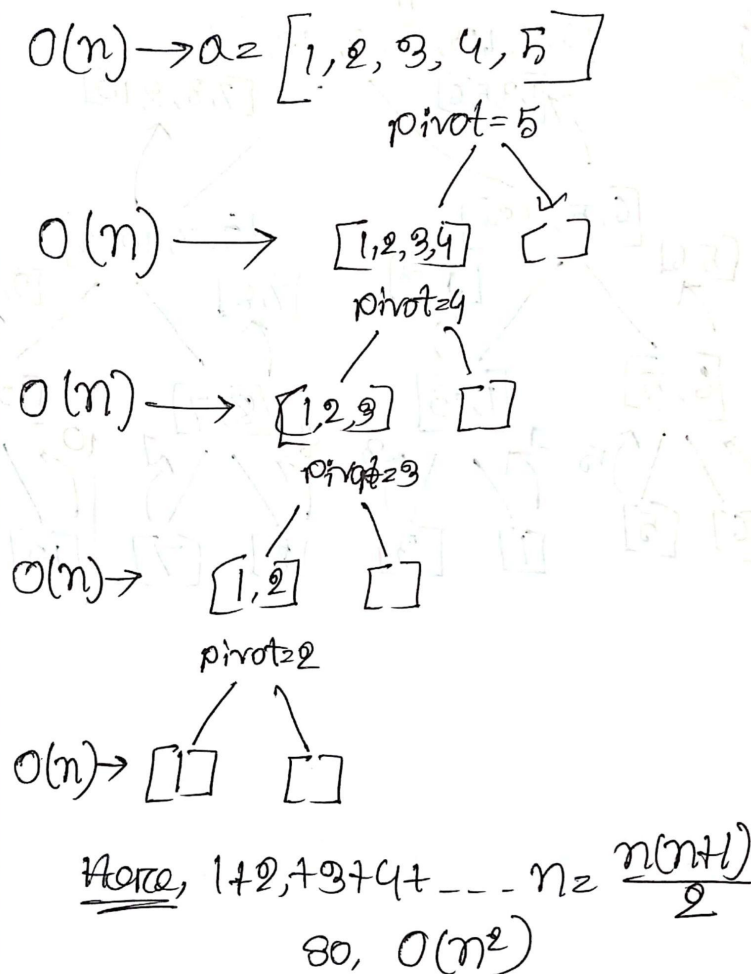 O(n) → a = [1, 2, 3, 4, 5]
pivot = 5
O(n) → [1,2,3,4] []
pivot=4
O(n) → [1,2,3] []
pivot=3
O(n) → [1,2] []
pivot=2
O(n) → [1] []
Here, 1+2,+3+4+ ---- n = n(n+1)/2
so, O(n²)